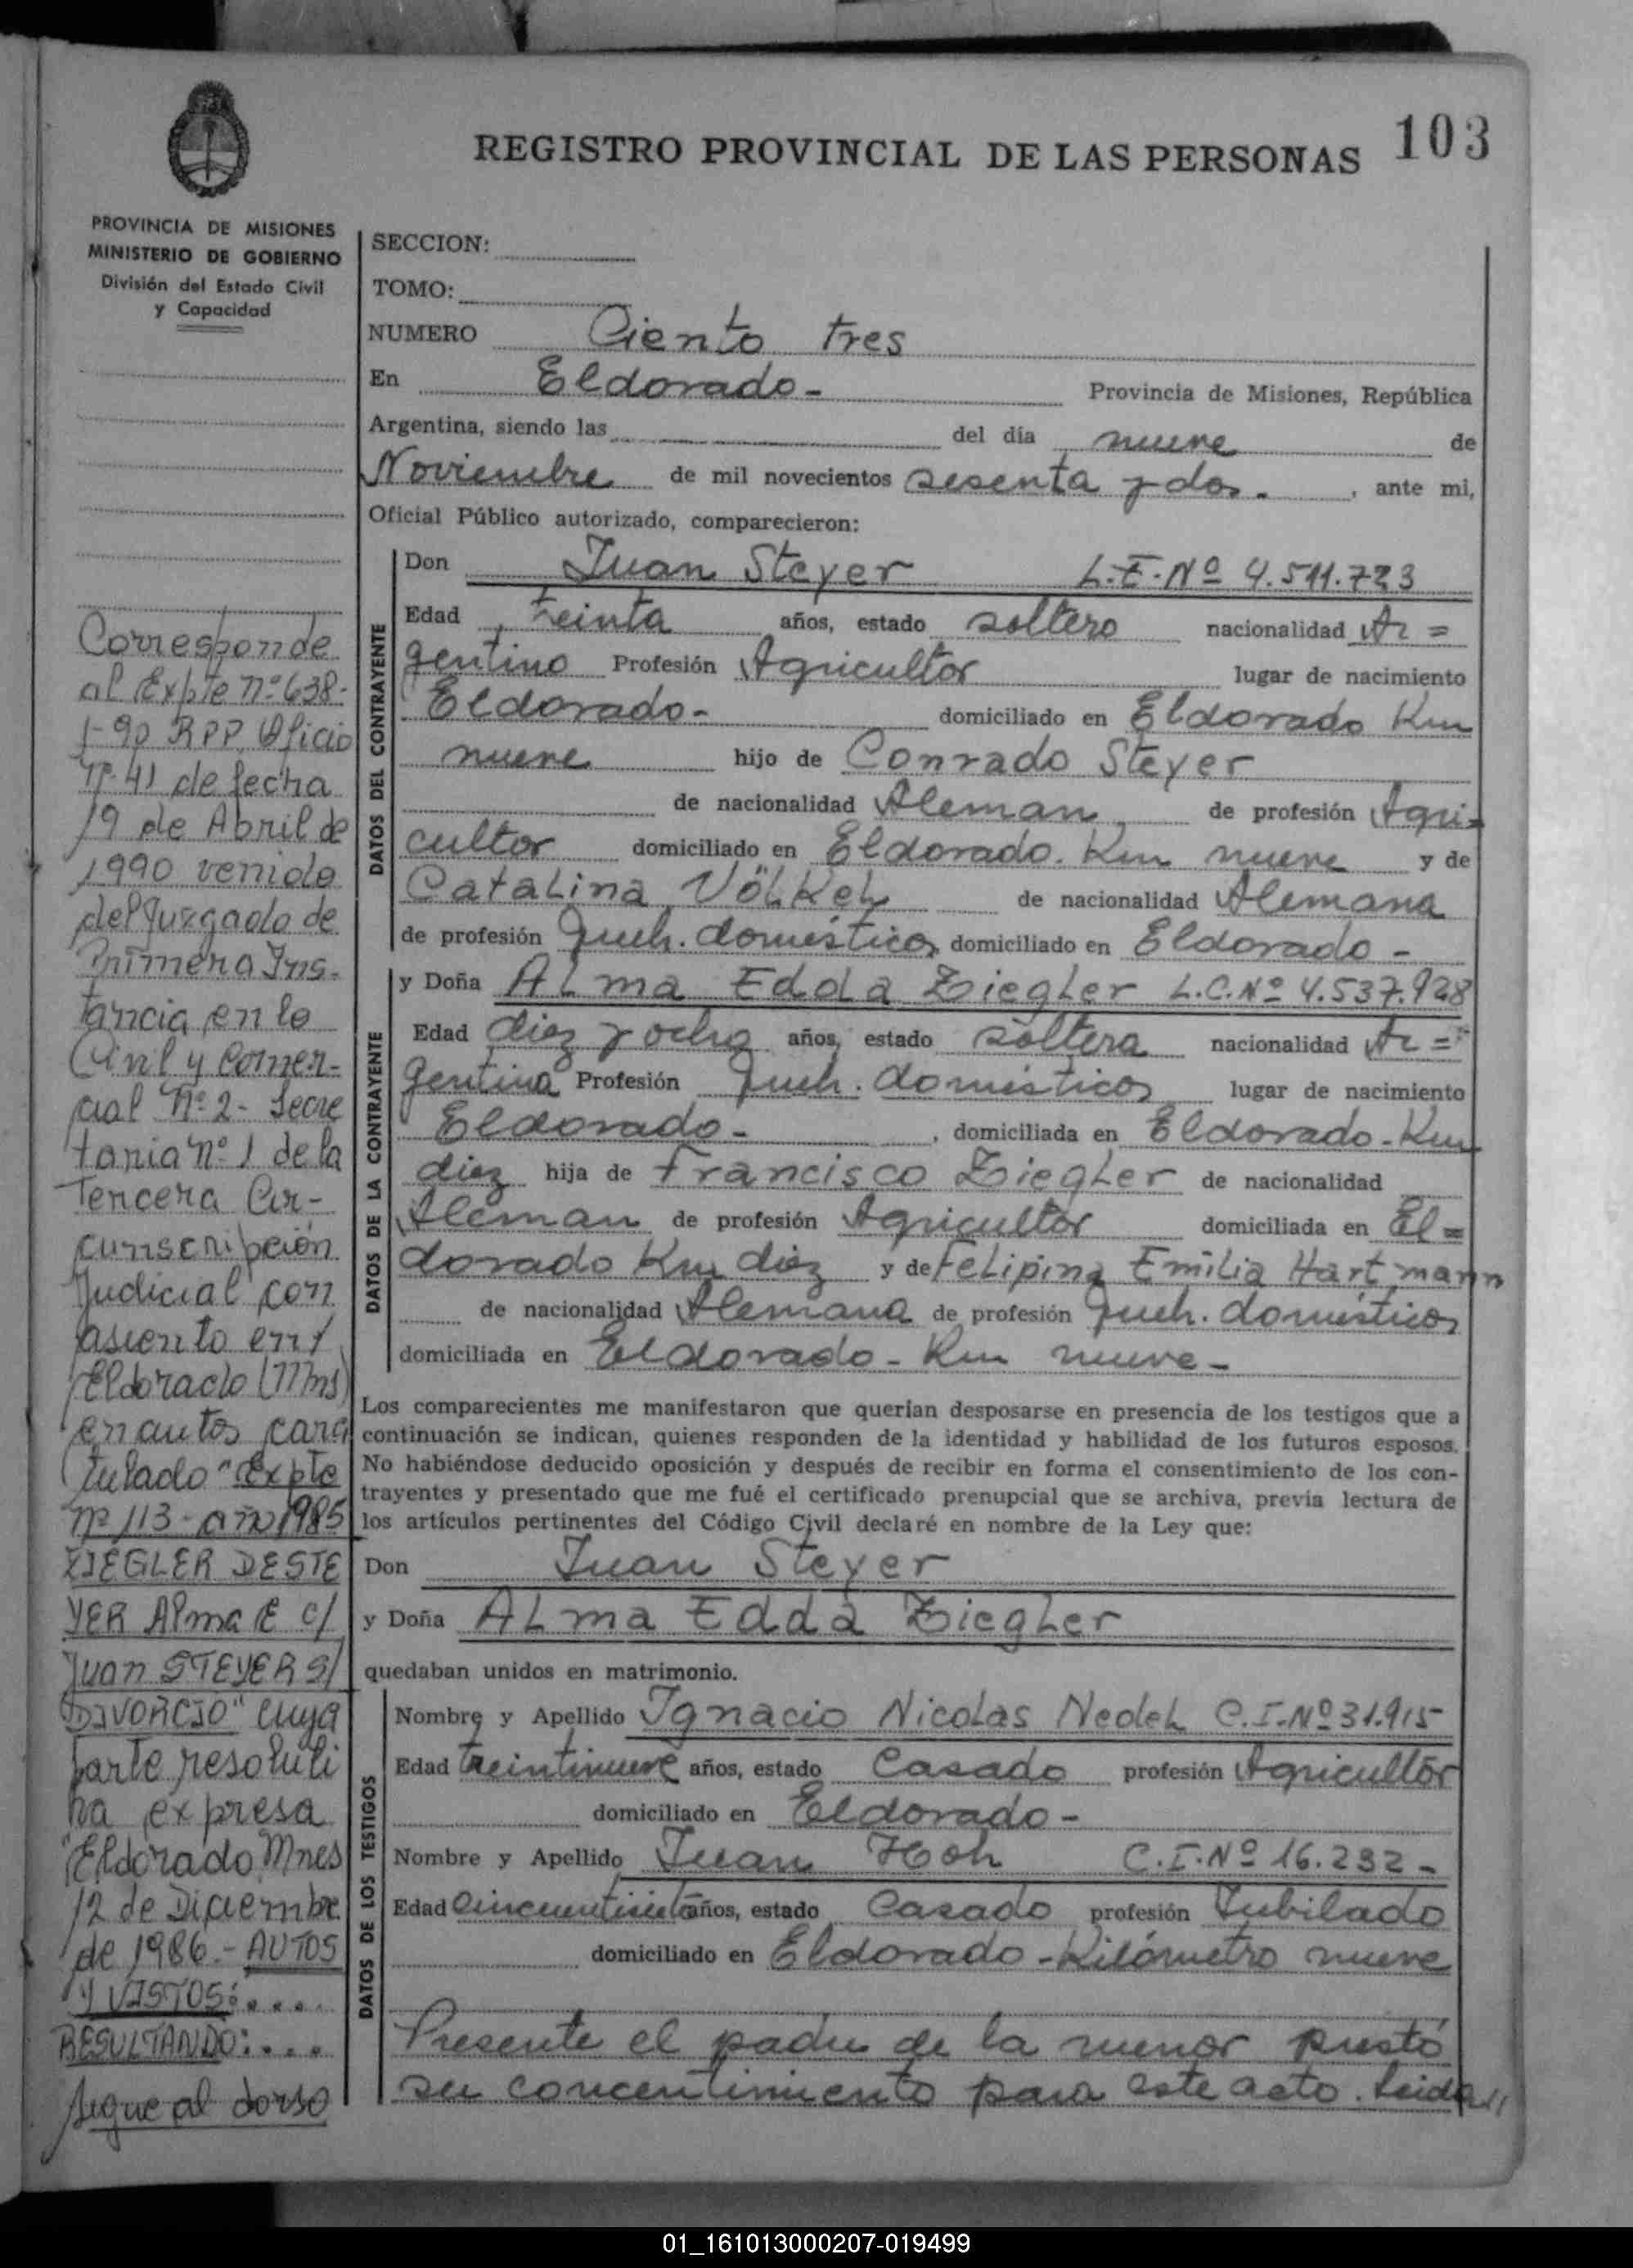 REGISTRO PROVINCIAL DE LAS PERSONAS 103
PROVINCIA DE MISIONES
MINISTERIO DE GOBIERNO
División del Estado Civil
y Capacidad
SECCION:
TOMO:
NUMERO Ciento tres
En Eldorado - Provincia de Misiones, República
Argentina, siendo las del día nueve de
Noviembre de mil novecientos sesenta y dos. , ante mi,
Oficial Público autorizado, comparecieron:
DATOS DEL CONTRAYENTE
Don Juan Steyer L.E.Nº 4.511.723
Edad treinta años, estado soltero nacionalidad Ar=
gentino Profesión Agricultor lugar de nacimiento
Eldorado- domiciliado en Eldorado Km
nueve hijo de Conrado Steyer
de nacionalidad Aleman de profesión Agri=
cultor domiciliado en Eldorado. Km nueve y de
Catalina Völkel de nacionalidad Alemana
de profesión Queh. domésticos domiciliado en Eldorado -
DATOS DE LA CONTRAYENTE
y Doña Alma Edda Ziegler L.C.Nº 4.537.928
Edad diez y ocho años, estado soltera nacionalidad Ar=
gentina Profesión Queh. domésticos lugar de nacimiento
Eldorado- , domiciliada en Eldorado-Km
diez hija de Francisco Ziegler de nacionalidad
Aleman de profesión Agricultor domiciliada en El=
dorado Km diez y de Felipina Emilia Hartmann
de nacionalidad Alemana de profesión Queh. domésticos
domiciliada en Eldorado - Km nueve-
Los comparecientes me manifestaron que querían desposarse en presencia de los testigos que a
continuación se indican, quienes responden de la identidad y habilidad de los futuros esposos.
No habiéndose deducido oposición y después de recibir en forma el consentimiento de los con-
trayentes y presentado que me fué el certificado prenupcial que se archiva, previa lectura de
los artículos pertinentes del Código Civil declaré en nombre de la Ley que:
Don Juan Steyer
y Doña Alma Edda Ziegler
quedaban unidos en matrimonio.
DATOS DE LOS TESTIGOS
Nombre y Apellido Ignacio Nicolas Nedel C.I.Nº 31.915
Edad treintinueve años, estado Casado profesión Agricultor
domiciliado en Eldorado-
Nombre y Apellido Juan Hoh C.I.Nº 16.232-
Edad Cincuentisiete años, estado Casado profesión Jubilado
domiciliado en Eldorado -Kilómetro nueve
Presente el padre de la menor prestó
su concentimiento para este acto. Leida//
Corresponde
al Expte nº 638-
1-90 RPP, Oficio
Nº 41 de fecha
19 de Abril de
1990 venido
del Juzgado de
Primera Ins-
tancia en lo
Civil y Comer-
cial Nº 2- Secre
taria nº 1 de la
Tercera Cir-
cunscripción
Judicial con
asiento en/
Eldorado (Mns)
en autos cara
tulado "Expte
nº 113-año 1985
ZIEGLER DE STE
YER Alma E c/
Juan STEYER S/
DIVORCIO" cuya
parte resoluti
va expresa
"Eldorado, Mnes
12 de Diciembre
de 1986.- AUTOS
Y VISTOS:....
RESULTANDO:....
Sigue al dorso
01_161013000207-019499